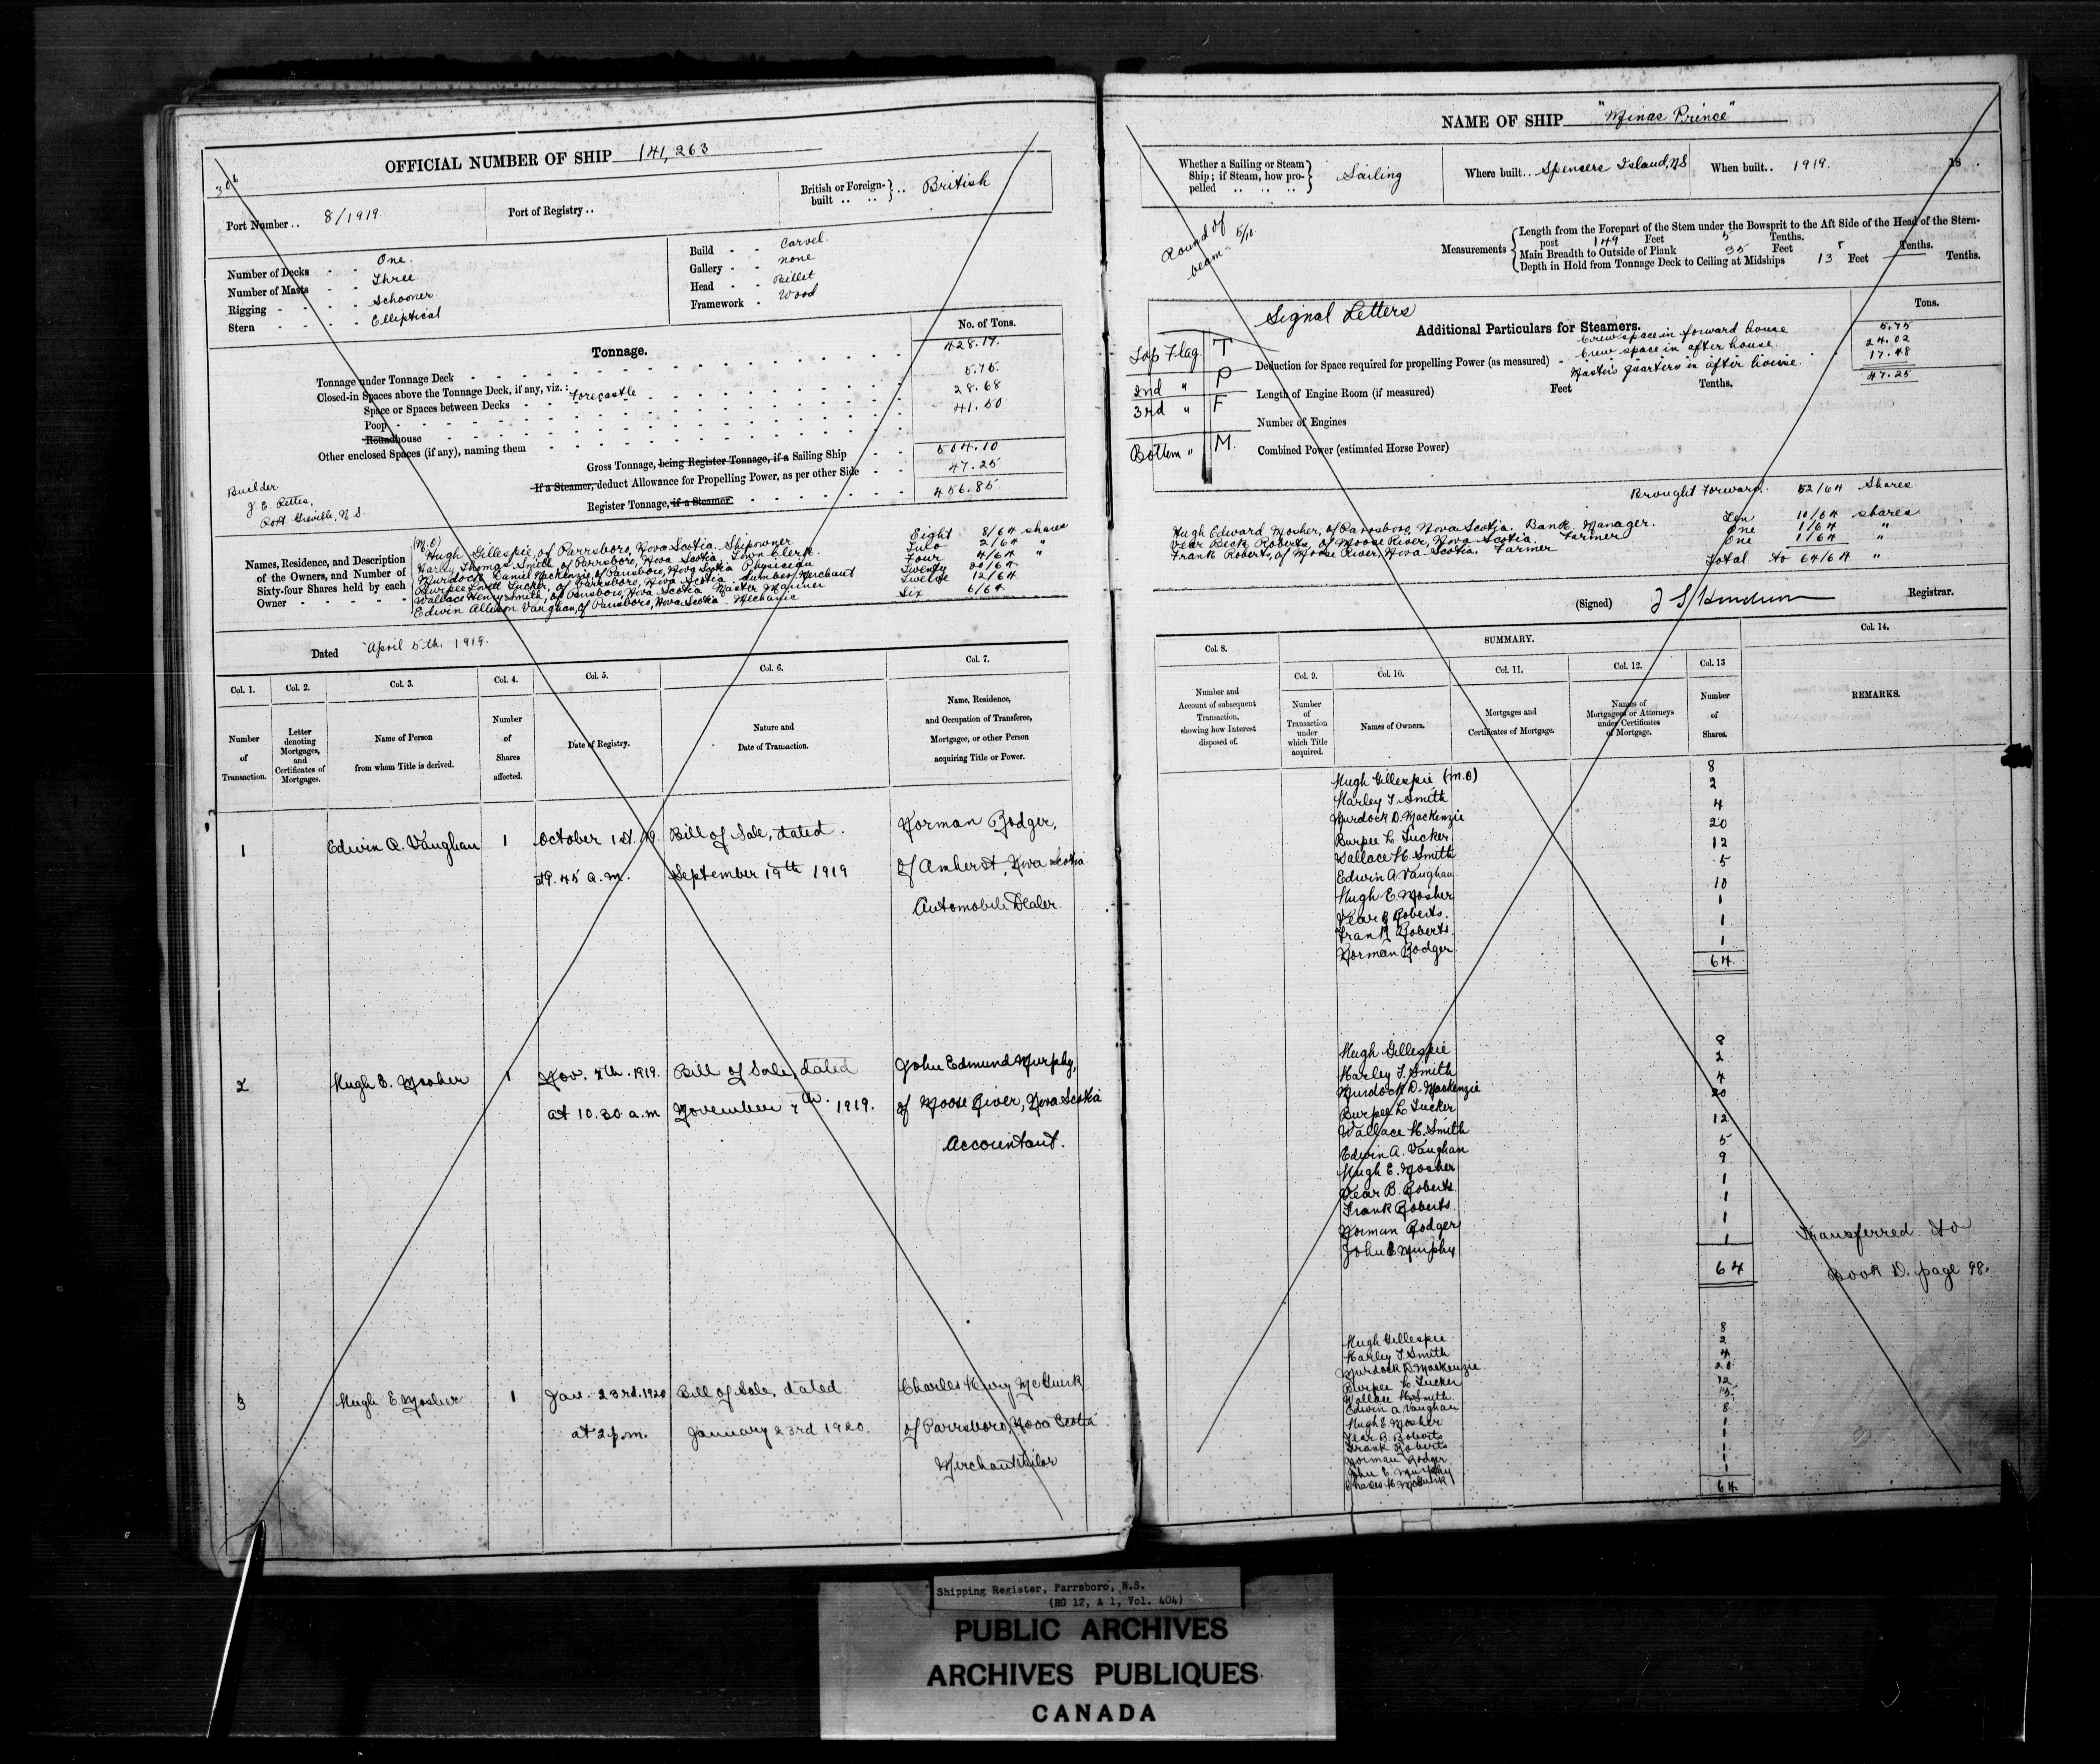 306
OFFICIAL NUMBER OF SHIP 141,263
Port Number .. 8/1919.
Port of Registry ..
British or Foreign-built .. .. } .. British
Number of Decks - - One.
Number of Masts - - Three
Rigging - - - - Schooner
Stern - - - - Elliptical
Build - - Carvel.
Gallery - - none
Head - - Billet
Framework - Wood
Tonnage.
No. of Tons.
Tonnage under Tonnage Deck 428.17.
Closed-in Spaces above the Tonnage Deck, if any, viz.:
Space or Spaces between Decks - Forecastle 5.75.
Poop 28.68
Roundhouse 41.50
Other enclosed Spaces (if any), naming them
Gross Tonnage, being Register Tonnage, if a Sailing Ship 504.10
If a Steamer, deduct Allowance for Propelling Power, as per other Side 47.25
Register Tonnage, if a Steamer 456.85
Builder.
J. E. Pettis,
Port Greville, N.S.
Names, Residence, and Description of the Owners, and Number of Sixty-four Shares held by each Owner
(M.O)
Hugh Gillespie, of Parrsboro, Nova Scotia. Shipowner Eight 8/64 shares
Harley Thomas Smith, of Parrsboro, Nova Scotia Town Clerk. Two 2/64 "
Murdock Daniel MacKenzie, of Parrsboro, Nova Scotia Physician Four 4/64 "
Burpee Lovett Tucker, of Parrsboro, Nova Scotia. Lumber Merchant Twenty 20/64
Wallace Henry Smith, of Parrsboro, Nova Scotia Master Mariner Twelve 12/64
Edwin Allison Vaughan, of Parrsboro, Nova Scotia. Mechanic Six 6/64
Dated April 5th. 1919.
Col. 1. Col. 2. Col. 3. Col. 4. Col. 5. Col. 6. Col. 7.
Number of Transaction.
Letter denoting Mortgages, and Certificates of Mortgages.
Name of Person from whom Title is derived.
Number of Shares affected.
Date of Registry.
Nature and Date of Transaction.
Name, Residence, and Occupation of Transferee, Mortgagee, or other Person acquiring Title or Power.
1 Edwin A. Vaughan 1 October 1st. 19. Bill of Sale, dated. Norman Rodger,
at 9.45 a.m. September 19th 1919 of Amherst, Nova Scotia
Automobile Dealer.
2 Hugh E. Mosher 1 Nov. 7th. 1919. Bill of Sale, dated John Edmund Murphy,
at 10.30 a.m November 7th. 1919. of Moose River, Nova Scotia
Accountant.
3 Hugh E Mosher 1 Jan. 23rd. 1920 Bill of Sale, dated Charles Henry McGuirk
at 2 p.m. January 23rd 1920. of Parrsboro, Nova Scotia
Merchant Tailor
NAME OF SHIP "Minas Prince"
Whether a Sailing or Steam Ship; if Steam, how propelled .. .. .. } Sailing
Where built .. Spencers Island, N.S
When built .. 1919. 18 .
Round of beam 5/10
Measurements
Length from the Forepart of the Stem under the Bowsprit to the Aft Side of the Head of the Stern-
post 149 Feet 5 Tenths.
Main Breadth to Outside of Plank 35 Feet 5 Tenths.
Depth in Hold from Tonnage Deck to Ceiling at Midships 13 Feet Tenths.
Signal Letters
Top Flag T
2nd " P
3rd " F
Bottom " M.
Additional Particulars for Steamers.
Tons.
Crew space in forward house 5.75
Crew space in after house. 24.02
Deduction for Space required for propelling Power (as measured) -
Master's quarters in after house. 17.48
47.25
Length of Engine Room (if measured) Feet Tenths.
Number of Engines
Combined Power (estimated Horse Power)
Brought Forward. 52/64 Shares
Hugh Edward Mosher, of Parrsboro, Nova Scotia. Bank Manager. Ten 10/64 shares
Vear Beck Roberts, of Moose River, Nova Scotia. Farmer One 1/64 "
Frank Roberts, of Moose River, Nova Scotia. Farmer One 1/64 "
Total to 64/64 "
(Signed) Registrar.
Col. 8. SUMMARY. Col. 14.
Col. 9. Col. 10. Col. 11. Col. 12. Col. 13
Number and Account of subsequent Transaction, showing how Interest disposed of.
Number of Transaction under which Title acquired.
Names of Owners.
Mortgages and Certificates of Mortgage.
Names of Mortgagees or Attorneys under Certificates of Mortgage.
Number of Shares.
REMARKS.
Hugh Gillespie (M.O) 8
Harley T. Smith 2
Murdock D. MacKenzie 4
Burpee L. Tucker 20
Wallace H. Smith 12
Edwin A Vaughan 5
Hugh E Mosher 10
Vear B Roberts. 1
Frank Roberts. 1
Norman Rodger 1
64
Hugh Gillespie 8
Harley T. Smith 2
Murdock D. MacKenzie 4
Burpee L Tucker 20
Wallace H. Smith 12
Edwin A. Vaughan 5
Hugh E. Mosher 9
Vear B. Roberts 1
Frank Roberts. 1
Norman Rodger 1
John E Murphy 1
64
Transferred to
Book D. page 98.
Hugh Gillespie 8
Harley T. Smith 2
Murdock D. MacKenzie 4
Burpee L. Tucker 20
Wallace H. Smith 12
Edwin A Vaughan 5
Hugh E. Mosher 8
Vear B. Roberts 1
Frank Roberts 1
Norman Rodger 1
John E Murphy 1
Charles H McGuirk 1
64
Shipping Register, Parrsboro, N.S.
(RG 12, A 1, Vol. 404)
PUBLIC ARCHIVES
ARCHIVES PUBLIQUES
CANADA